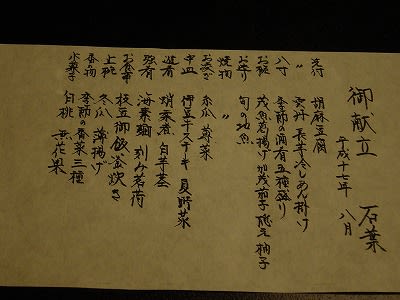 御献立 石葉
平成十七年 八月
先付 胡麻豆腐
〃 雲丹 長芋冷しあん掛け
八寸 季節の酒肴五種盛り
お椀 葛揚げ 加茂茄子 隠元 柚子
お造り 旬の地魚
焼物 〃
お凌ぎ 糸瓜 蓴菜
中皿 伊豆牛ステーキ 夏野菜
進肴 蛸柔煮 白芋茎
強肴 海素麺 刻み茗荷
お食事 枝豆御飯 釜炊き
止椀 冬瓜 薄揚げ
香の物 季節の香菜三種
水菓子 白桃 無花果